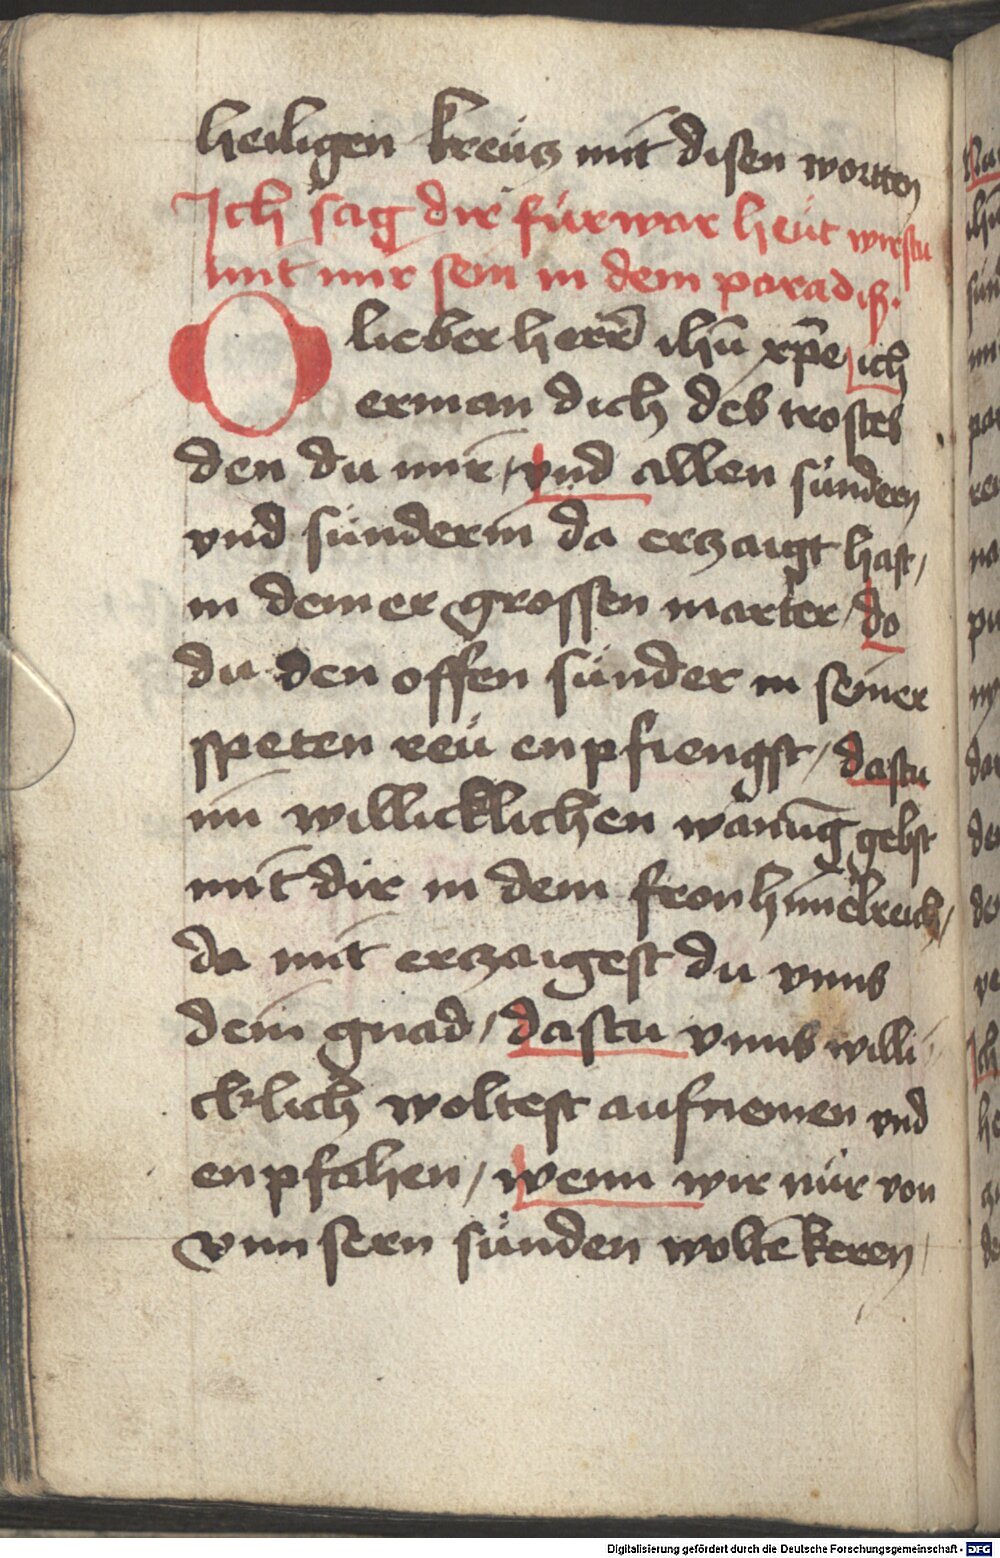 heiligen kreütz mit disen wortten
Ich sag dir für war heüt wirstu
mit mir sein in dem paradiß.
O lieber herr̄ ih̄u xp̄e ich
erman dich des trostes
den du mir / vnd allen sündern
vnd sünderin da erzaigt hast /
in deiner grossen marter / do
du den offen sünder in seiner
speten reü enpfiengst / dastu
im willicklichen wanūg gebst
mit dir in dem fron him̄elreich /
da mit erzaigest du vnns
dein gnad / dastu vnns willi
cklich woltest aufnemen vnd
enpfahen / wenn wir nür von
vnnsern sünden woltē keren /
Digitalisierung gefördert durch die Deutsche Forschungsgemeinschaft - DFG